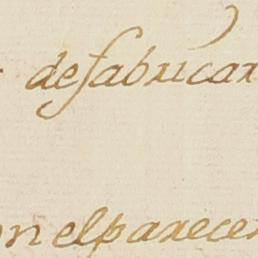 de fabricar
on el parecer